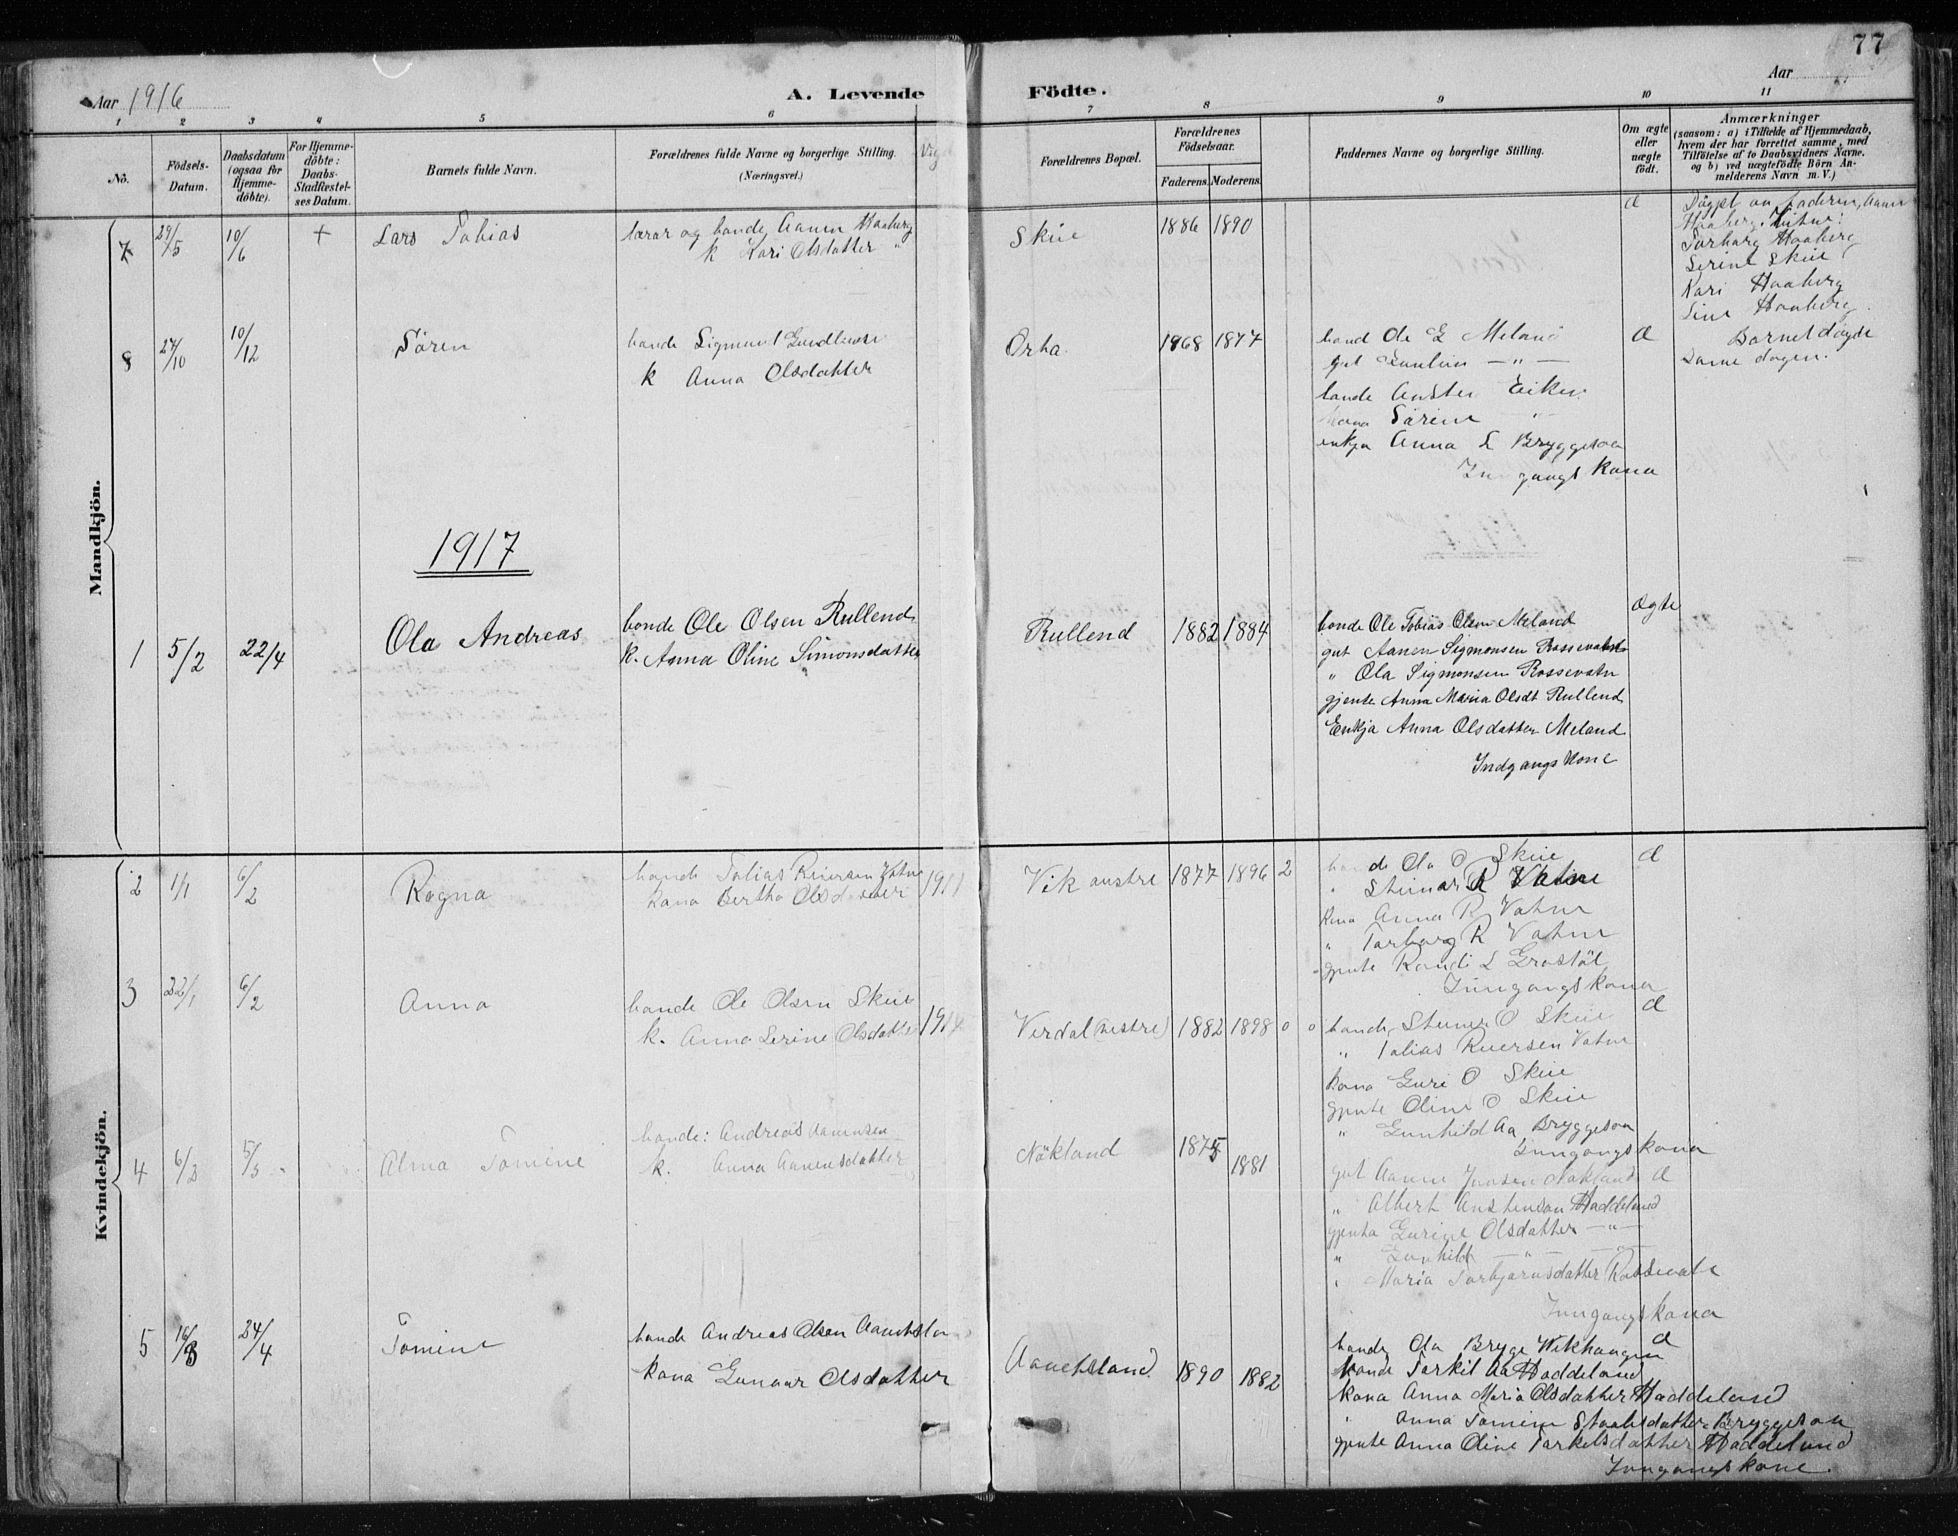 77
Aar 1916
A. Levende
Födte.
Aar
1 2 3 4 5 6 7 8 9 10 11
No.
Födsels-
Datum.
Daabsdatum
(ogsaa for
Hjemme-
döbte).
For Hjemme-
döbte:
Daabs-
Stadfæstel-
ses Datum.
Barnets fulde Navn.
Forældrenes fulde Navne og borgerlige Stilling.
(Næringsvei.)
Forældrenes Bopæl.
Forældrenes
Födselsaar.
Faderens. Moderens.
Faddernes Navne og borgerlige Stilling.
Om ægte
eller
uægte
födt.
Anmærkninger
(saasom: a) i Tilfælde af Hjemmedaab,
hvem der har forrettet samme, med
Tilföielse af to Daabsvidners Navne.
og b) ved uægtefödte Börn An-
melderens Navn m. V.)
Mandkjön.
7 29/5 10/6 +
Lars Tobias
lærar og bonde Aanen Haaberg
k Kari Olsdatter "
Skeie
1886 1890
Æ
Döypt av faderen, Aanen
Haaberg.
Torborg Haaberg
Serine Skeie
Kari Haaberg
Sine Haaberg
8 27/10 10/12
Sören
bonde Sigmund
k Anna Olsdatter
Orha.
1868 1877
bond Ole G Meland
gut — " —
bonde Ansten Eiken
kona Sörine "
enkja Anna S Bryggesaa
Inngangskona
Æ
Barnet döyde
same dagen.
1917
1 5/2 22/4
Ola Andreas
bonde Ole Olsen Rullend
k. Anna Oline Simonsdatter
Rullend
1882 1884
bonde Ole Tobias Olsen Meland
gut Aanen Sigmonsen Rossevatn
" Ola Sigmonsen Rossevatn
gjente Anna Maria Olsdt Rullend
Enkja Anna Olsdatter Meland
Indgangskone
Ægte
Kvindekjön.
2 1/1 6/2
Ragna
bonde Tobias Reiersen Vatne
kona Bertha Olsdatter
Vik austre
1877 1896 2
bonde Ola O Skeie
" Steinar R Vatne
kona Anna R Vatne
" Torborg R Vatne
gjente Randi L Grostöl
Inngangskona
Æ
3 22/1 6/2
Anna
bonde Ole Olsen Skeie
k. Anna Serine Olsdatter
Verdal (vestre)
1882 1898 0 0
bonde Steiner O Skeie
" Tobias Reiersen Vatne
kona Guri O Skeie
gjente Oline O Skeie
" Gunhild Aa Bryggesaa
Inngangskona
Æ
4 6/3 5/5
Alma Tomine
bonde: Andreas Aanensen
k. Anna Aanensdatter
Nökland
1875
1881
gut Aanen Jensen Nökland
" Albert Anstenson Haddeland
gjenta Gurine Olsdatter — " —
" Gunhild — " —
" Maria Torbjørnsdatter Rossevatn
Inngangskona
Æ
5 16/3 24/4
Tomine
bonde Andreas Olsen Aanebsland
kona Gunnar Olsdatter
Aanebsland.
1890 1882
bonde Ola Bryge Wikhaugen
bonde Torkil Aa Haddeland
kona Anna Maria Olsdatter Haddeland
" Anna Tomine Staalesdatter Bryggesaa
gjente Anna Oline Torkelsdatter Haddeland
Inngangskone.
Æ